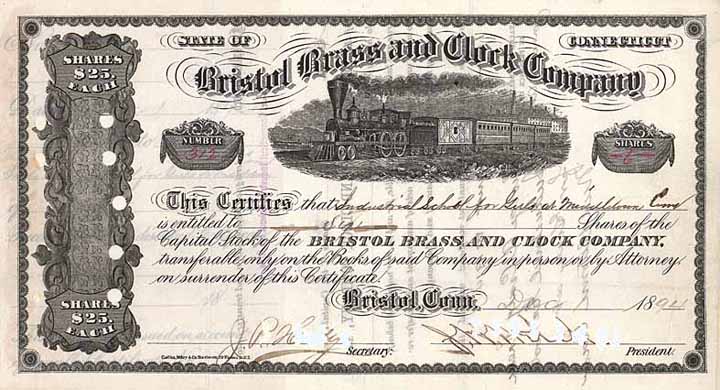 STATE OF
CONNECTICUT
SHARES $25. EACH
Bristol Brass and Clock Company
NUMBER
SHARES
6
This Certifies that Industrial School for Girls at Middletown Conn
is entitled to Six Shares of the
Capital Stock of the BRISTOL BRASS AND CLOCK COMPANY,
transferable only on the Books of said Company in person or by Attorney
on surrender of this Certificate.
Bristol, Conn. Dec 1 1894
SHARES $25. EACH
J. P.
Secretary.
President.